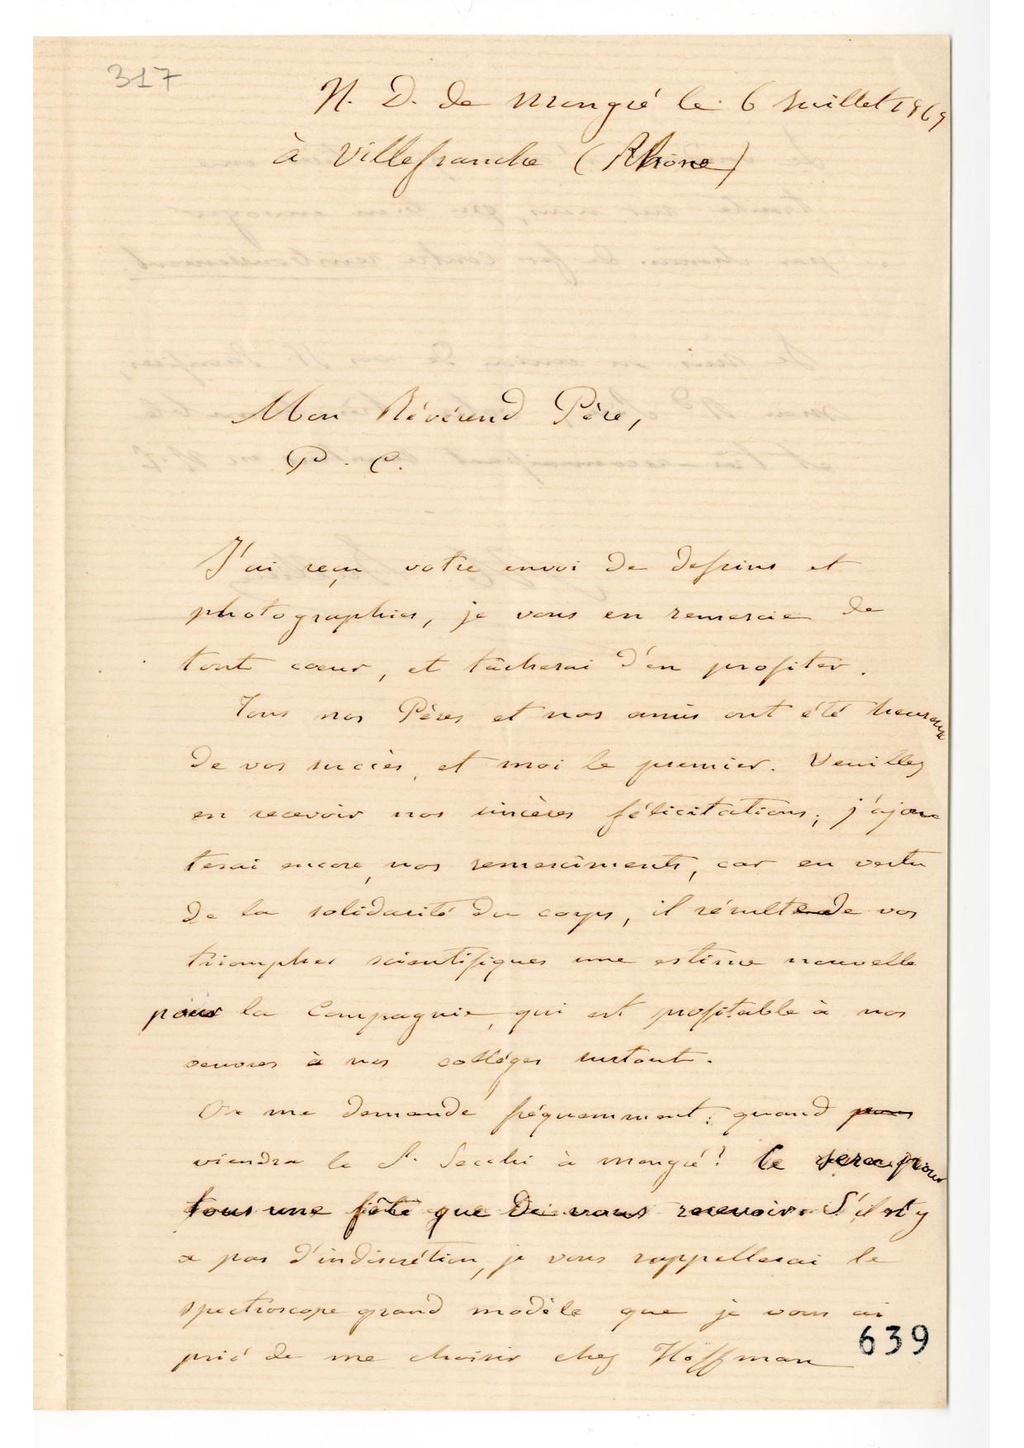 317
N. D. de mongré le 6 Juillet 1869
à Villefranche (Rhône)
Mon Révérend Père,
P. C.
J'ai reçu votre envoi de dessins et
photographies, je vous en remercie de
tout cœur, et tâcherai d'en profiter.
Tous nos Pères et nos amis ont été heureux
de vos succès, et moi le premier. Veuillez
en recevoir nos sincères félicitations; j'ajou
terai encore nos remerciments, car en vertu
de la solidarité du corps, il résulte de vos
triomphes scientifiques une estime nouvelle
pour la Compagnie, qui est profitable à nos
oeuvres à nos collèges surtout.
On me demande fréquemment: quand
viendra le P. Secchi à mongré? Ce sera pour
tous une fête que de vous recevoir. S'il n'y
a pas d'indiscrétion, je vous rappellerai le
spectroscope grand modèle que je vous ai
prié de me choisir chez Hoffman
639